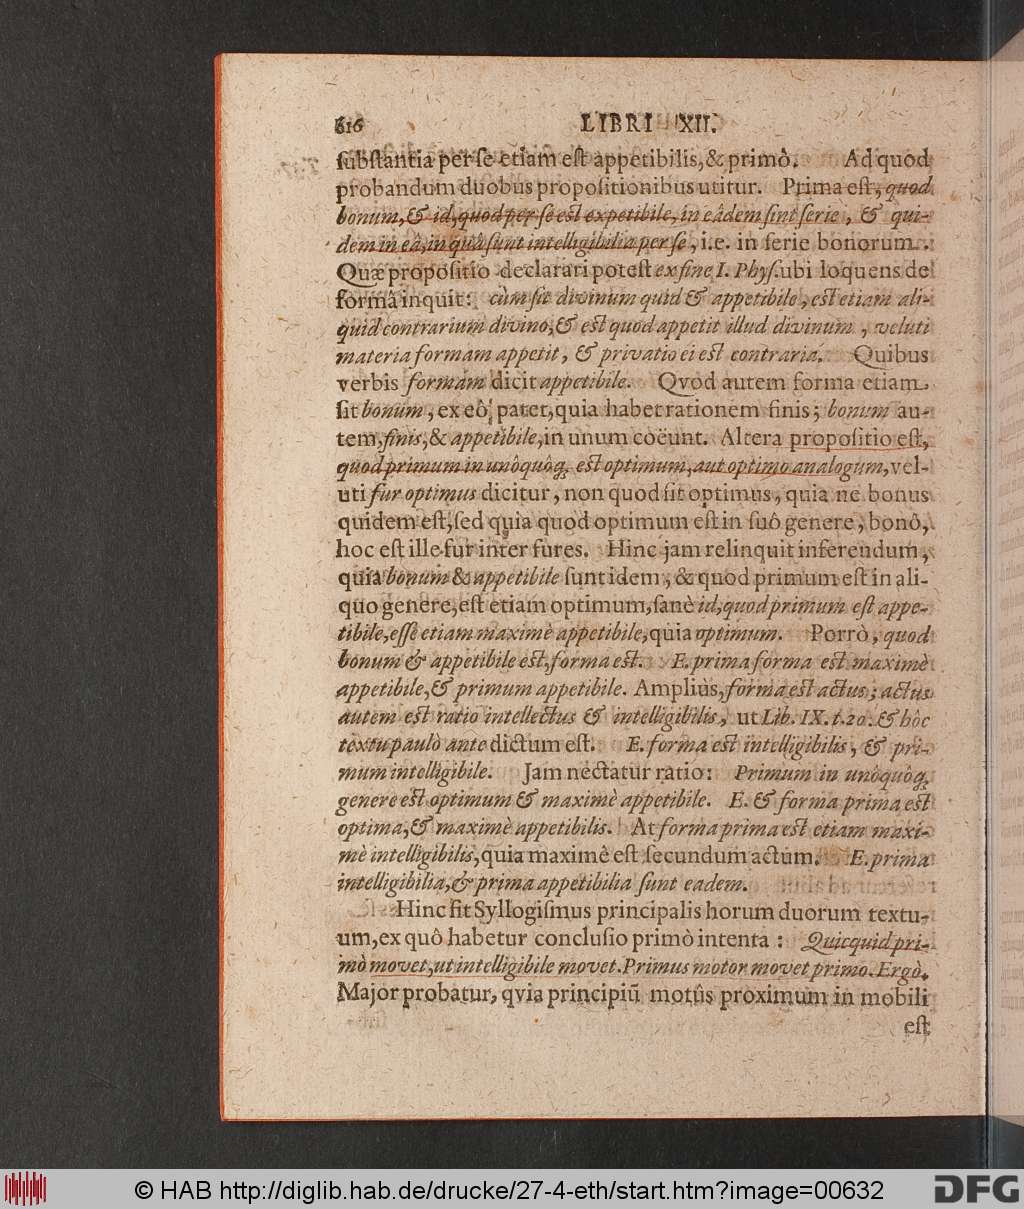 616 LIBRI XII.
ſubſtantia per ſe etiam eſt appetibilis, & primò. Ad quod
probandum duobus propoſitionibus utitur. Prima eſt, quod
bonum, & id, quod per ſe eſt expetibile, in eâdem ſint ſerie, & qui-
dem in eâ, in quâ ſunt intelligibilia per ſe, i.e. in ſerie bonorum.
Quæ propoſitio declarari poteſt ex fine I. Phyſ. ubi loquens de
formâ inquit: cùm ſit divinum quid & appetibile, eſt etiam ali-
quid contrarium divino, & eſt quod appetit illud divinum, veluti
materia formam appetit, & privatio ei eſt contraria. Quibus
verbis formam dicit appetibile. Qvod autem forma etiam
ſit bonum, ex eô patet, quia habet rationem finis; bonum au-
tem, finis, & appetibile, in unum coëunt. Altera propoſitio eſt,
quod primum in unôquôq; eſt optimum, aut optimo analogum, vel-
uti fur optimus dicitur, non quod ſit optimus, quia ne bonus
quidem eſt, ſed quia quod optimum eſt in ſuô genere, bonô,
hoc eſt ille fur inter fures. Hinc jam relinquit inferendum,
quia bonum & appetibile ſunt idem, & quod primum eſt in ali-
quo genere, eſt etiam optimum, ſanè id, quod primum eſt appe-
tibile, eſſe etiam maximè appetibile, quia optimum. Porrò, quod
bonum & appetibile eſt, forma eſt. E. prima forma eſt maximè
appetibile, & primum appetibile. Ampliùs, forma eſt actus; actus
autem eſt ratio intellectus & intelligibilis, ut Lib. IX. t.20. & hôc
textu paulò ante dictum eſt. E. forma eſt intelligibilis, & pri-
mum intelligibile. Jam nectatur ratio: Primum in unôquôq;
genere eſt optimum & maximè appetibile. E. & forma prima eſt
optima, & maximè appetibilis. At forma prima eſt etiam maxi-
mè intelligibilis, quia maximè eſt ſecundum actum. E. prima
intelligibilia, & prima appetibilia ſunt eadem.
Hinc fit Syllogiſmus principalis horum duorum textu-
um, ex quô habetur concluſio primò intenta: Quicquid pri-
mò movet, ut intelligibile movet. Primus motor movet primo. Ergò.
Major probatur, qvia principiũ motûs proximum in mobili
eſt
© HAB http://diglib.hab.de/drucke/27-4-eth/start.htm?image=00632
DFG